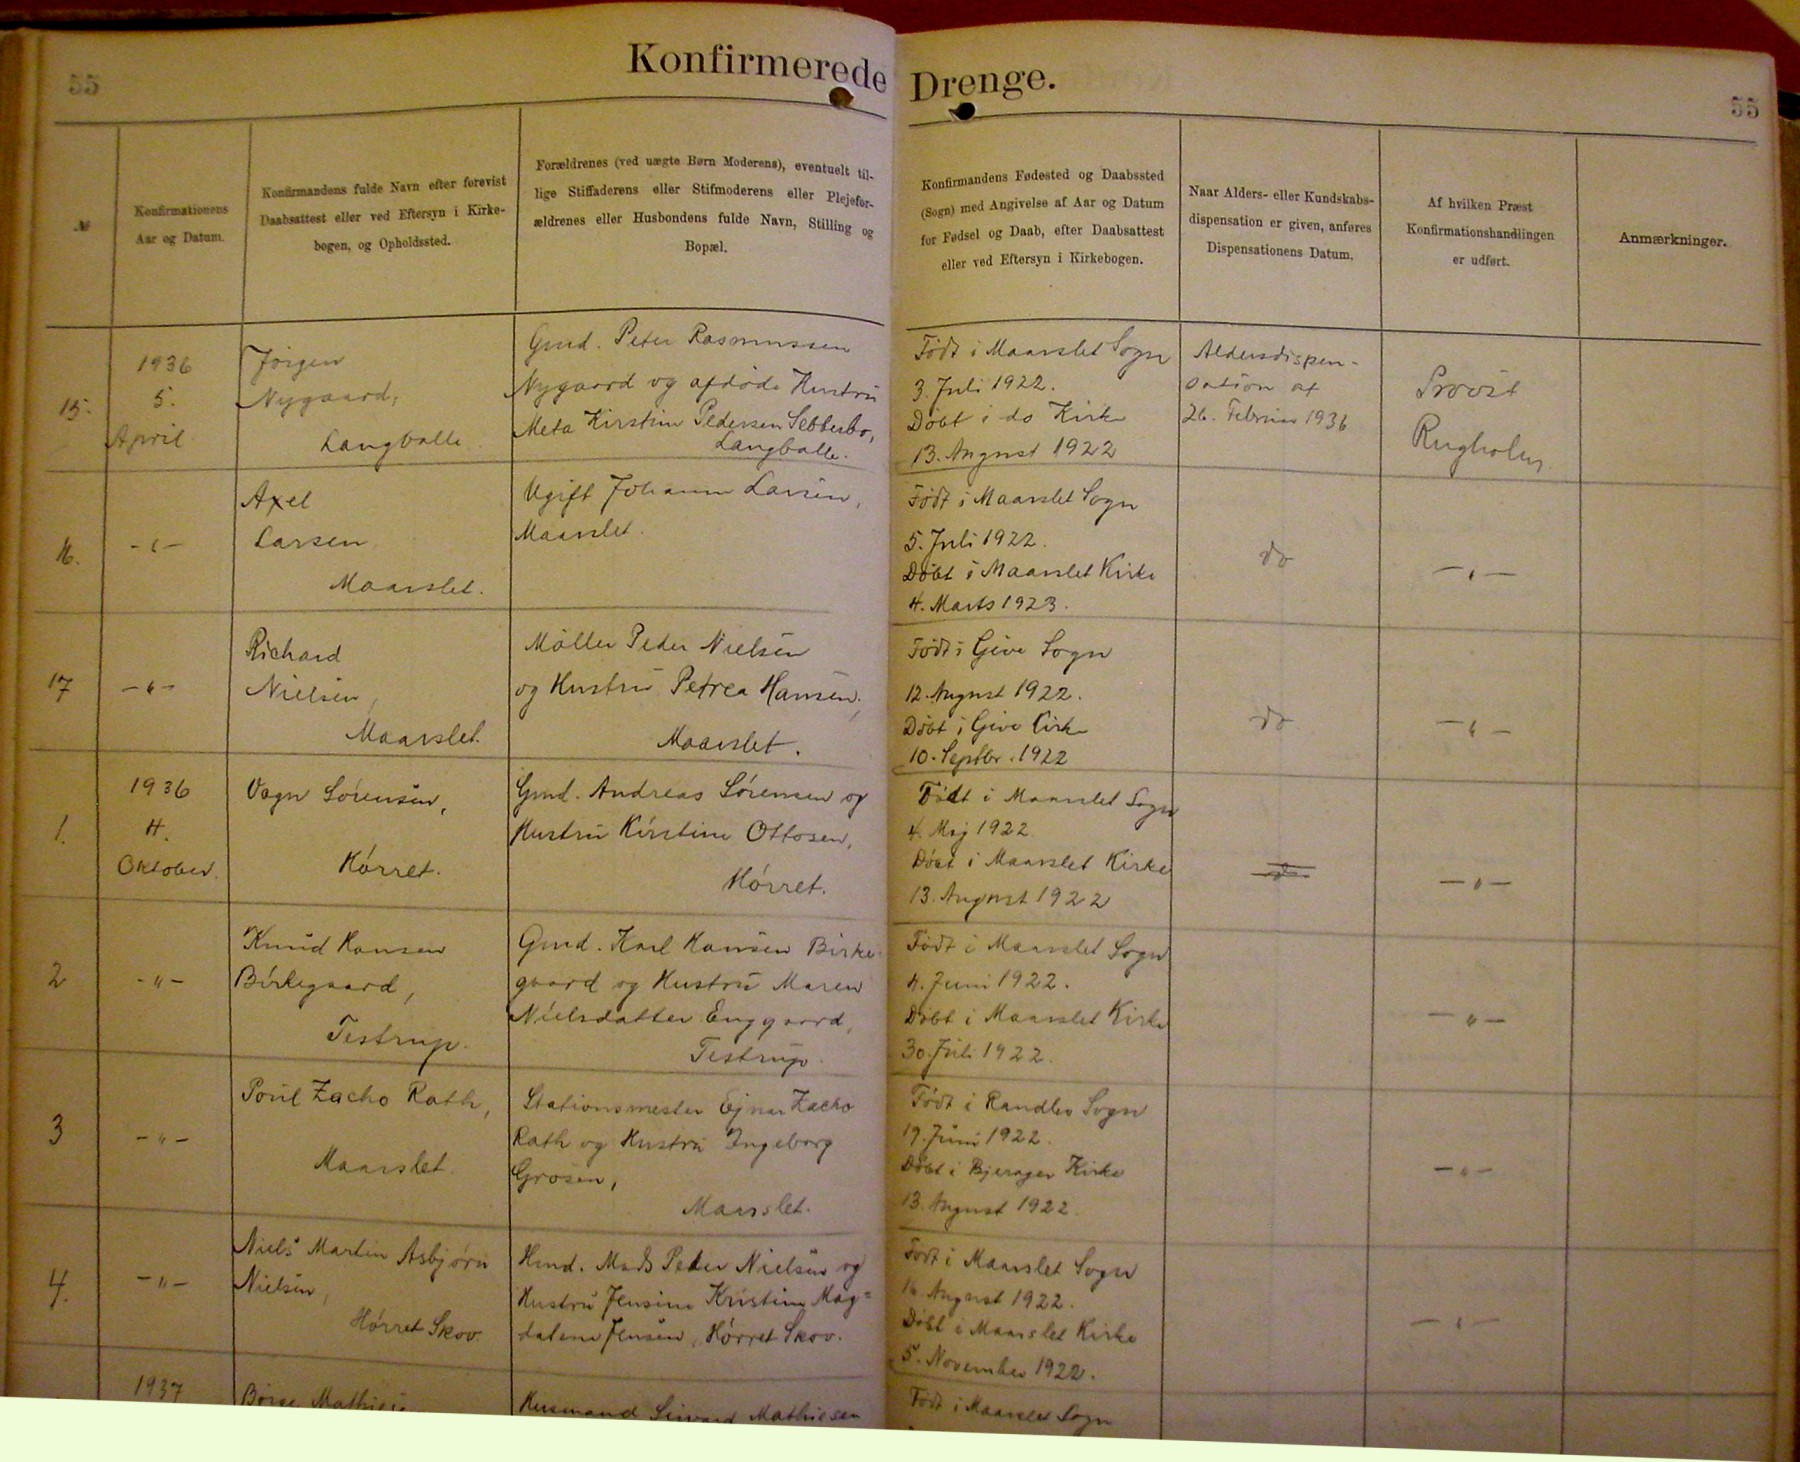 55
Konfirmerede Drenge.
55
№
Konfirmationens
Aar og Datum.
Konfirmandens fulde Navn efter forevist
Daabsattest eller ved Eftersyn i Kirke-
bogen, og Opholdssted.
Forældrenes (ved uægte Børn Moderens), eventuelt til-
lige Stiffaderens eller Stifmoderens eller Plejefor-
ældrenes eller Husbondens fulde Navn, Stilling og
Bopæl.
Konfirmandens Fødested og Daabssted
(Sogn) med Angivelse af Aar og Datum
for Fødsel og Daab, efter Daabsattest
eller ved Eftersyn i Kirkebogen.
Naar Alders- eller Kundskabs-
dispensation er given, anføres
Dispensationens Datum.
Af hvilken Præst
Konfirmationshandlingen
er udført.
Anmærkninger.
15.
1936
5.
April
Jørgen
Nygaard,
Langballe.
Gmd. Peter Rasmussen
Nygaard og afdøde Hustru
Meta Kirstine Pedersen Sebberbo,
Langballe.
Født i Maarslet Sogn
3. Juli 1922.
Døbt i do Kirke
13. August 1922
Aldersdispen-
sation af
26. Februar 1936
Provst
Rugholm
16.
-"-
Axel
Larsen
Maarslet.
Ugift Johanne Larsen,
Maarslet.
Født i Maarslet Sogn
5. Juli 1922.
Døbt i Maarslet Kirke
4. Marts 1923.
do
-"-
17
-"-
Richard
Nielsen,
Maarslet.
Møller Peder Nielsen
og Hustru Petrea Hansen,
Maarslet.
Født i Give Sogn
12. August 1922.
Døbt i Give Kirke
10. Septbr. 1922
do
-"-
1.
1936
4.
Oktober.
Vagn Sørensen,
Hørret.
Gmd. Andreas Sørensen og
Hustru Kirstine Ottosen,
Hørret.
Født i Maarslet Sogn
4. Maj 1922.
Døbt i Maarslet Kirke
13. August 1922
-"-
2
-"-
Knud Hansen
Birkegaard,
Testrup.
Gmd. Karl Hansen Birke-
gaard og Hustru Maren
Nielsdatter Enggaard,
Testrup.
Født i Maarslet Sogn
4. Juni 1922.
Døbt i Maarslet Kirke
30. Juli 1922.
-"-
3
-"-
Poul Zacho Rath,
Maarslet.
Stationsmester Ejnar Zacho
Rath og Hustru Ingeborg
Grosen,
Maarslet.
Født i Randlev Sogn
19. Juni 1922.
Døbt i Bjerager Kirke
13. August 1922.
-"-
4.
-"-
Niels Martin Asbjørn
Nielsen,
Hørret Skov.
Hmd. Mads Peder Nielsen og
Hustru Jensine Kristine Mag=
dalene Jensen, Hørret Skov.
Født i Maarslet Sogn
16. August 1922.
Døbt i Maarslet Kirke
5. November 1922.
-"-
1937
Børge
Husmand Sivard Mathiesen
Født i Maarslet Sogn